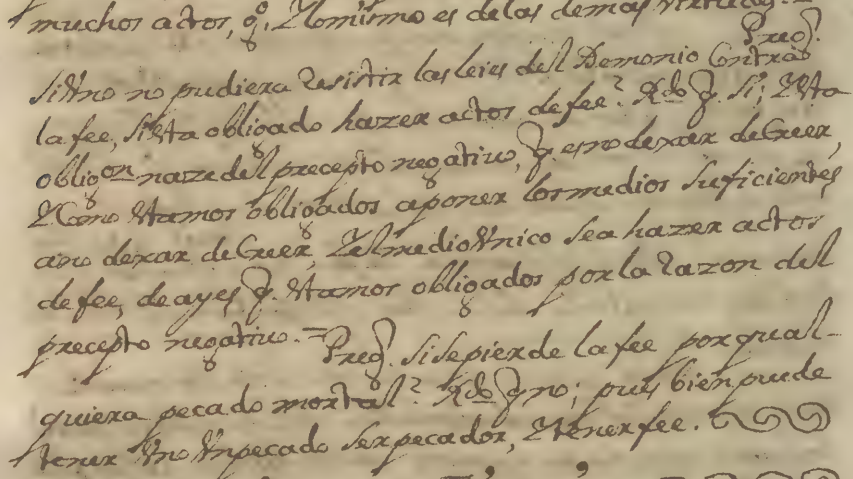 muchos actos, qº. Y lo mismo es de las demas virtudes. =
Preg.
si Vno no pudiera resistir las leies del Demonio Contra
la fee, si esta obligado hazer actos de fee? Rdo q. si; Esta
obligon naze del precepto negatiuo, q. es no dexar de Creer,
Y Como estamos obligados a poner los medios suficientes
a no dexar de Creer, Y el medio Vnico sea hazer actos
de fee, de ay es, q. estamos obligados por la razon del
precepto negatiuo. = Preg. si se pierde la fee por qual-
quiera pecado mortal? Rdo q no; pues bien puede
tener Vno Vn pecado ser pecador, Y tener fee.